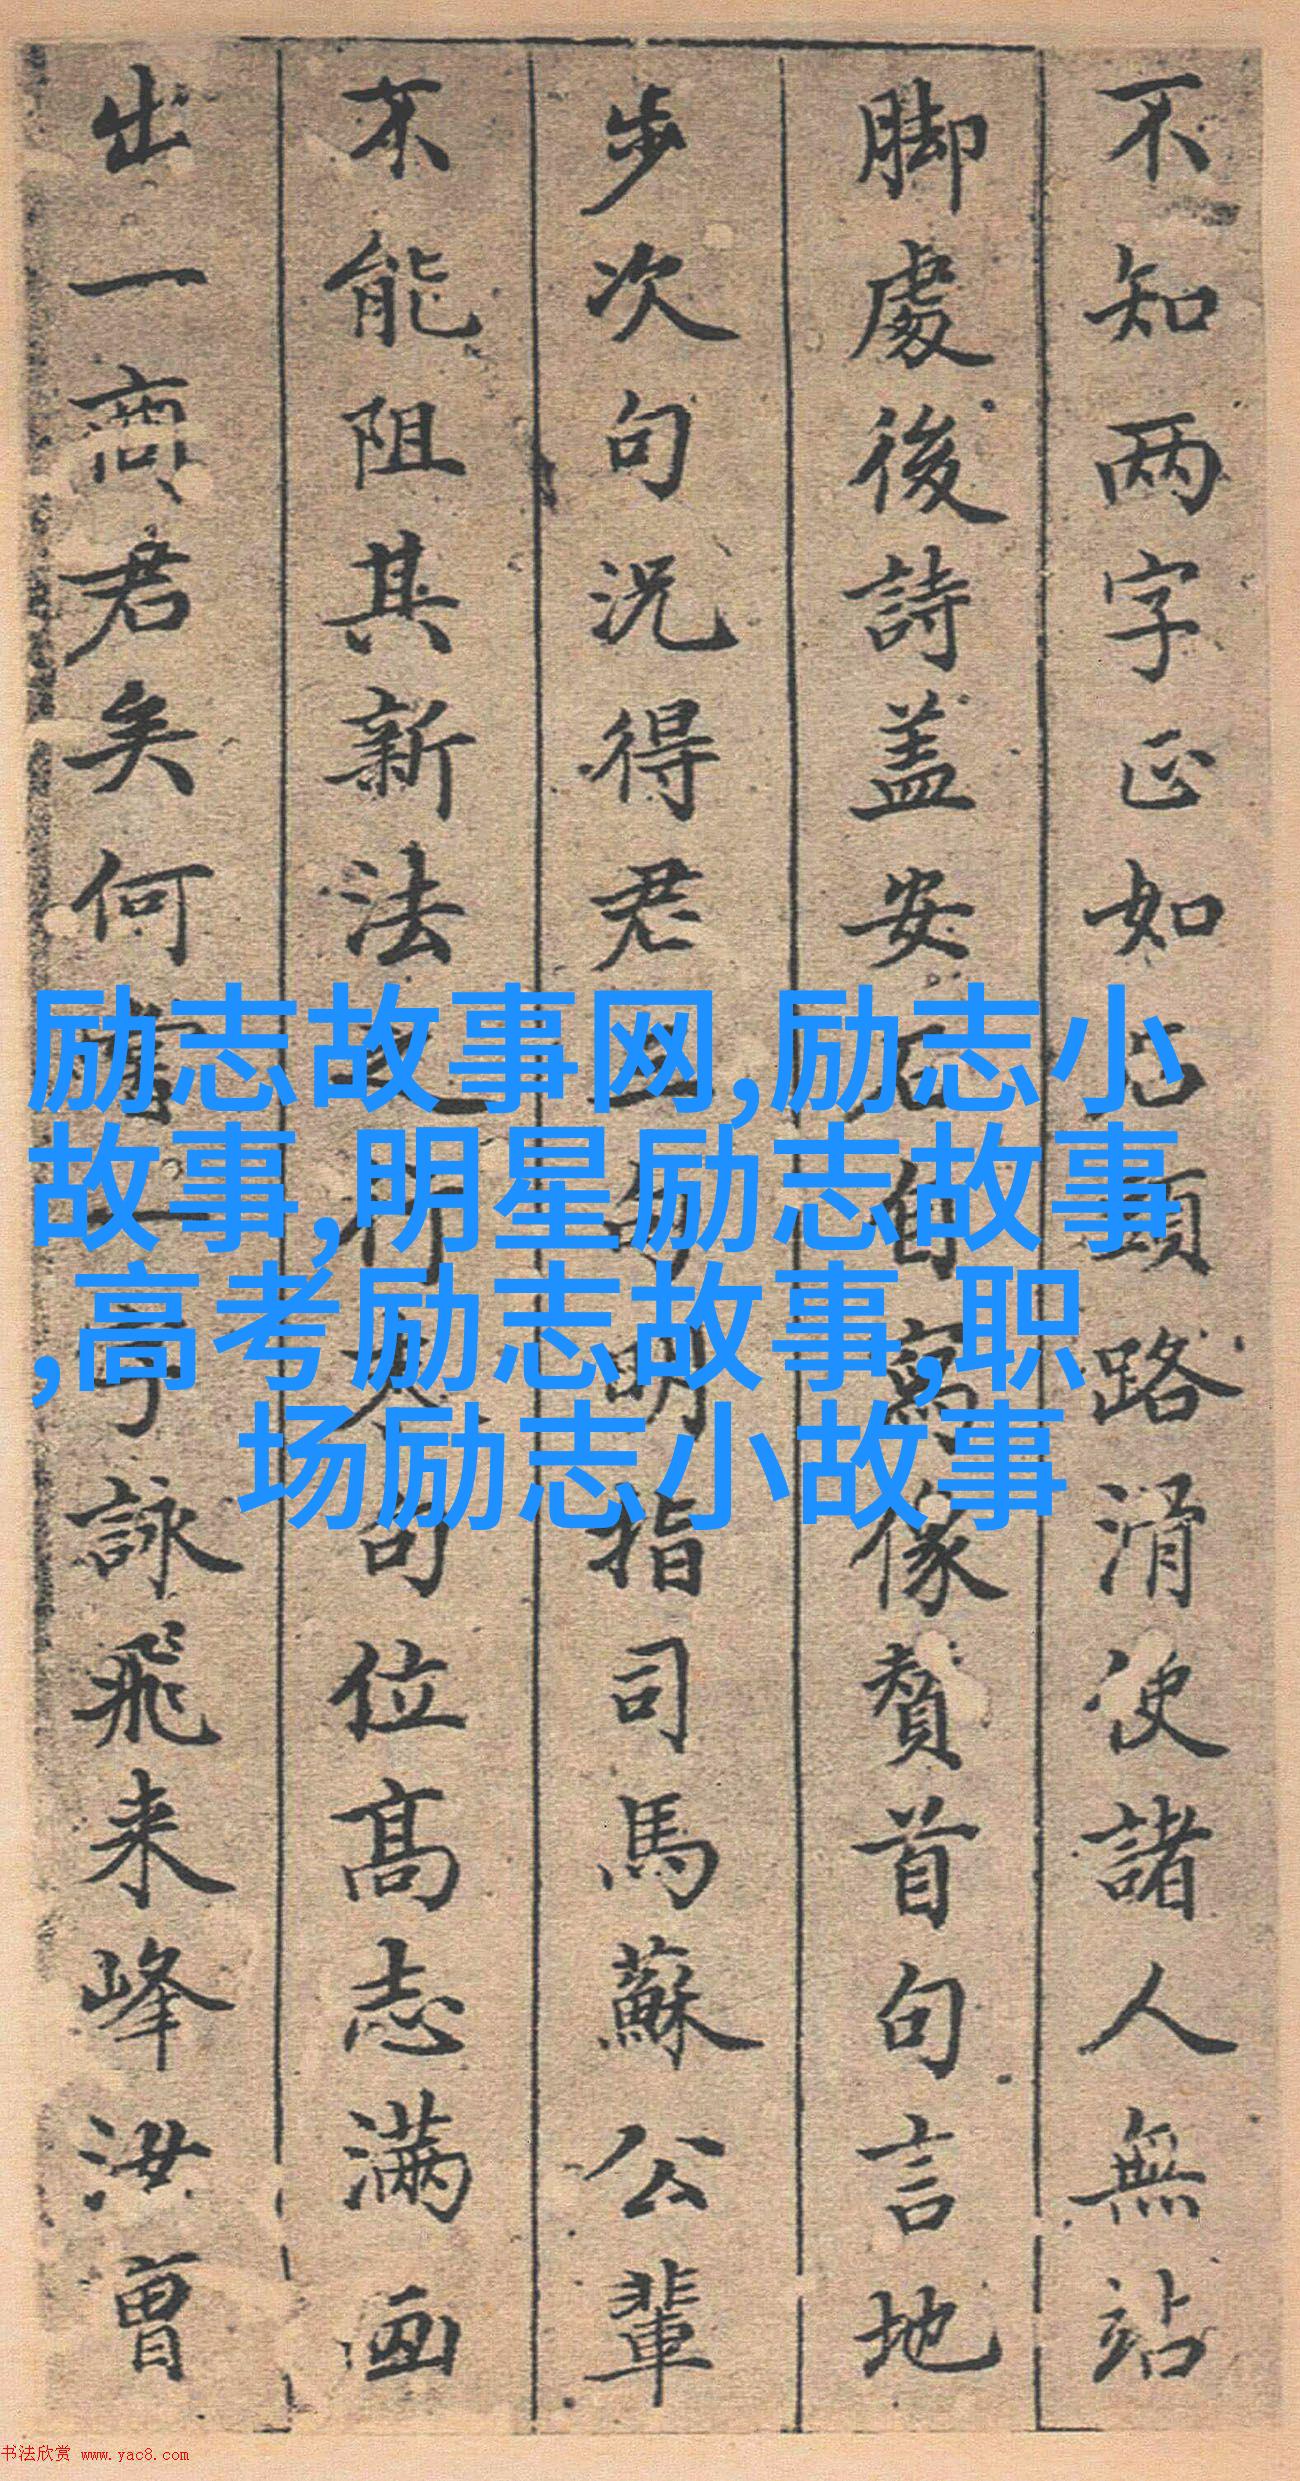 不知两字正如頭路滑使諸人無站
脚處後詩盖安石自寫像贊首句言地
步次句况得君三句明指司馬蘇公輩
不能阻其新法之行末句位高志满画
出一商君矣何詠飛来峰汝曾
励志故事网,励志小
故事,明星励志故事
,高考励志故事,职
场励志小故事
书法欣赏 www.yac8.com